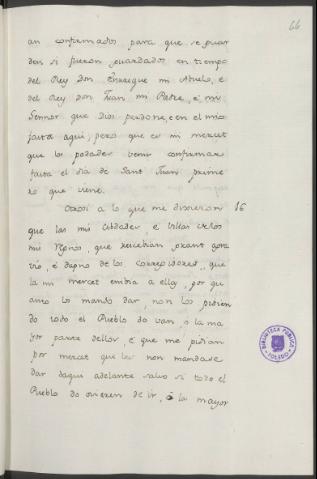 66
an confirmados para que se guar
den si fueron guardados en tiempo
del Rey Don Enrrique mi Abuelo, e
del Rey Don Juan mi Padre, e mi
Sennor que Dios perdone, e en el mio
fasta aqui; pero que es mi mercet
que los podades venir confirmar
fasta el dia de Sant Juan prime
ro que viene.
Otrosi a lo que me dixieron 16
que las mis Cibdades, e Villas de los
mis Regnos, que reciebian grant agra
vio, e dapno de los Corregidores, que
la mi mercet embia a ellas, por qu
anto los mando dar, non los pidien
do todo el Pueblo do van, o la ma
yor parte dellos, e que me pidian
por mercet que les non mandase
dar daqui adelante salvo si todo el
Pueblo do ovieren de ir, o la mayor
BIBLIOTECA PUBLICA
TOLEDO